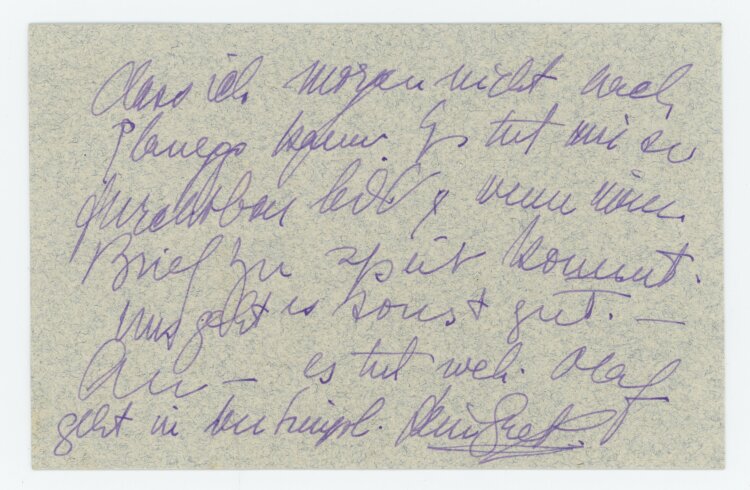 dass ich morgen nicht nach
Planegg kann. Es tut mir so
furchtbar leid & wenn mein
Brief zu spät kommt.
uns geht es sonst gut. —
Au — es tut weh. Olaf
geht in